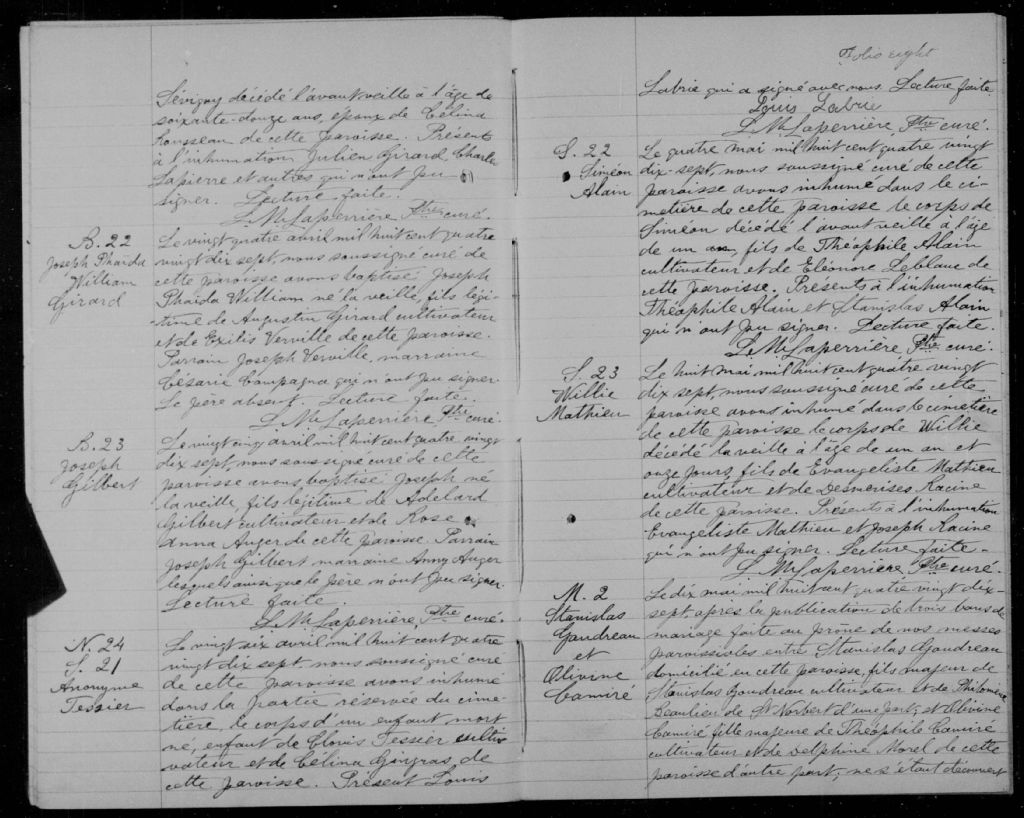 Sévigny décédé l'avant veille à l'âge de
soixante-douze ans, époux de Célina
Rousseau de cette paroisse. Présent
à l'inhumation Julien Girard Charles
Lapierre et autres qui n'ont pu
signer. Lecture faite.
L. M. Laperrière, Ptre curé.
B. 22
Joseph Phaida
William
Girard
Le vingt quatre avril mil huit cent quatre
vingt dix sept, nous soussigné curé de
cette paroisse avons baptisé Joseph
Phaida William né la veille, fils légi-
-time de Augustin Girard cultivateur
et de Exilis Verville de cette paroisse.
Parrain Joseph Verville, marraine
Césarie Campagna qui n'ont pu signer
Le père absent. Lecture faite.
L. M. Laperrière Ptre curé.
B. 23
Joseph
Gilbert
Le vingt cinq avril mil huit cent quatre vingt
dix sept, nous soussigné curé de cette
paroisse avons baptisé Joseph né
la veille, fils légitime de Adélard
Gilbert cultivateur et de Rose
Anna Auger de cette paroisse. Parrain
Joseph Gilbert marraine Anny Auger
lesquels ainsi que le père n'ont pu signer.
Lecture faite.
L. M. Laperrière, Ptre curé.
N. 24
S. 21
Anonyme
Tessier
Le vingt six avril mil huit cent quatre
vingt dix sept nous soussigné curé
de cette paroisse avons inhumé
dans la partie réservée du cime-
tière, le corps d'un enfant mort
né, enfant de Clovis Tessier culti-
vateur et de Célina Gingras de
cette paroisse. Présent Louis
Folio eight
Labrie qui a signé avec nous. Lecture faite.
Louis Labrie
L. M. Laperrière, Ptre curé.
S. 22
Siméon
Alain
Le quatre mai mil huit cent quatre vingt
dix-sept, nous soussigné curé de cette
paroisse avons inhumé dans le ci-
metière de cette paroisse le corps de
Siméon décédé l'avant veille à l'âge
de un an, fils de Théophile Alain
cultivateur et de Eléonore Leblanc de
cette paroisse. Présents à l'inhumation
Théophile Alain et Stanislas Alain
qui n'ont pu signer. Lecture faite.
L. M. Laperrière Ptre curé.
S. 23
Willie
Mathieu
Le huit mai mil huit cent quatre vingt
dix sept, nous soussigné curé de cette
paroisse avons inhumé dans le cimetière
de cette paroisse le corps de Willie
décédé la veille à l'âge de un an et
onze jours, fils de Evangeliste Mathieu
cultivateur et de Desmerises Racine
de cette paroisse. Présents à l'inhumation
Evangeliste Mathieu et Joseph Racine
qui n'ont pu signer. Lecture faite.
L. M. Laperrière Ptre curé.
M. 2
Stanislas
Gaudreau
et
Olivine
Camiré
Le dix mai mil huit cent quatre vingt dix-
sept, après la publication de trois bans de
mariage faite au prône de nos messes
paroissiales entre Stanislas Gaudreau
domicilié en cette paroisse, fils majeur de
Stanislas Gaudreau cultivateur et de Philomène
Beaulieu de St Norbert d'une part, et Olivine
Camiré fille majeure de Théophile Camiré
cultivateur et de Delphine Morel de cette
paroisse d'autre part; ne s'étant découvert